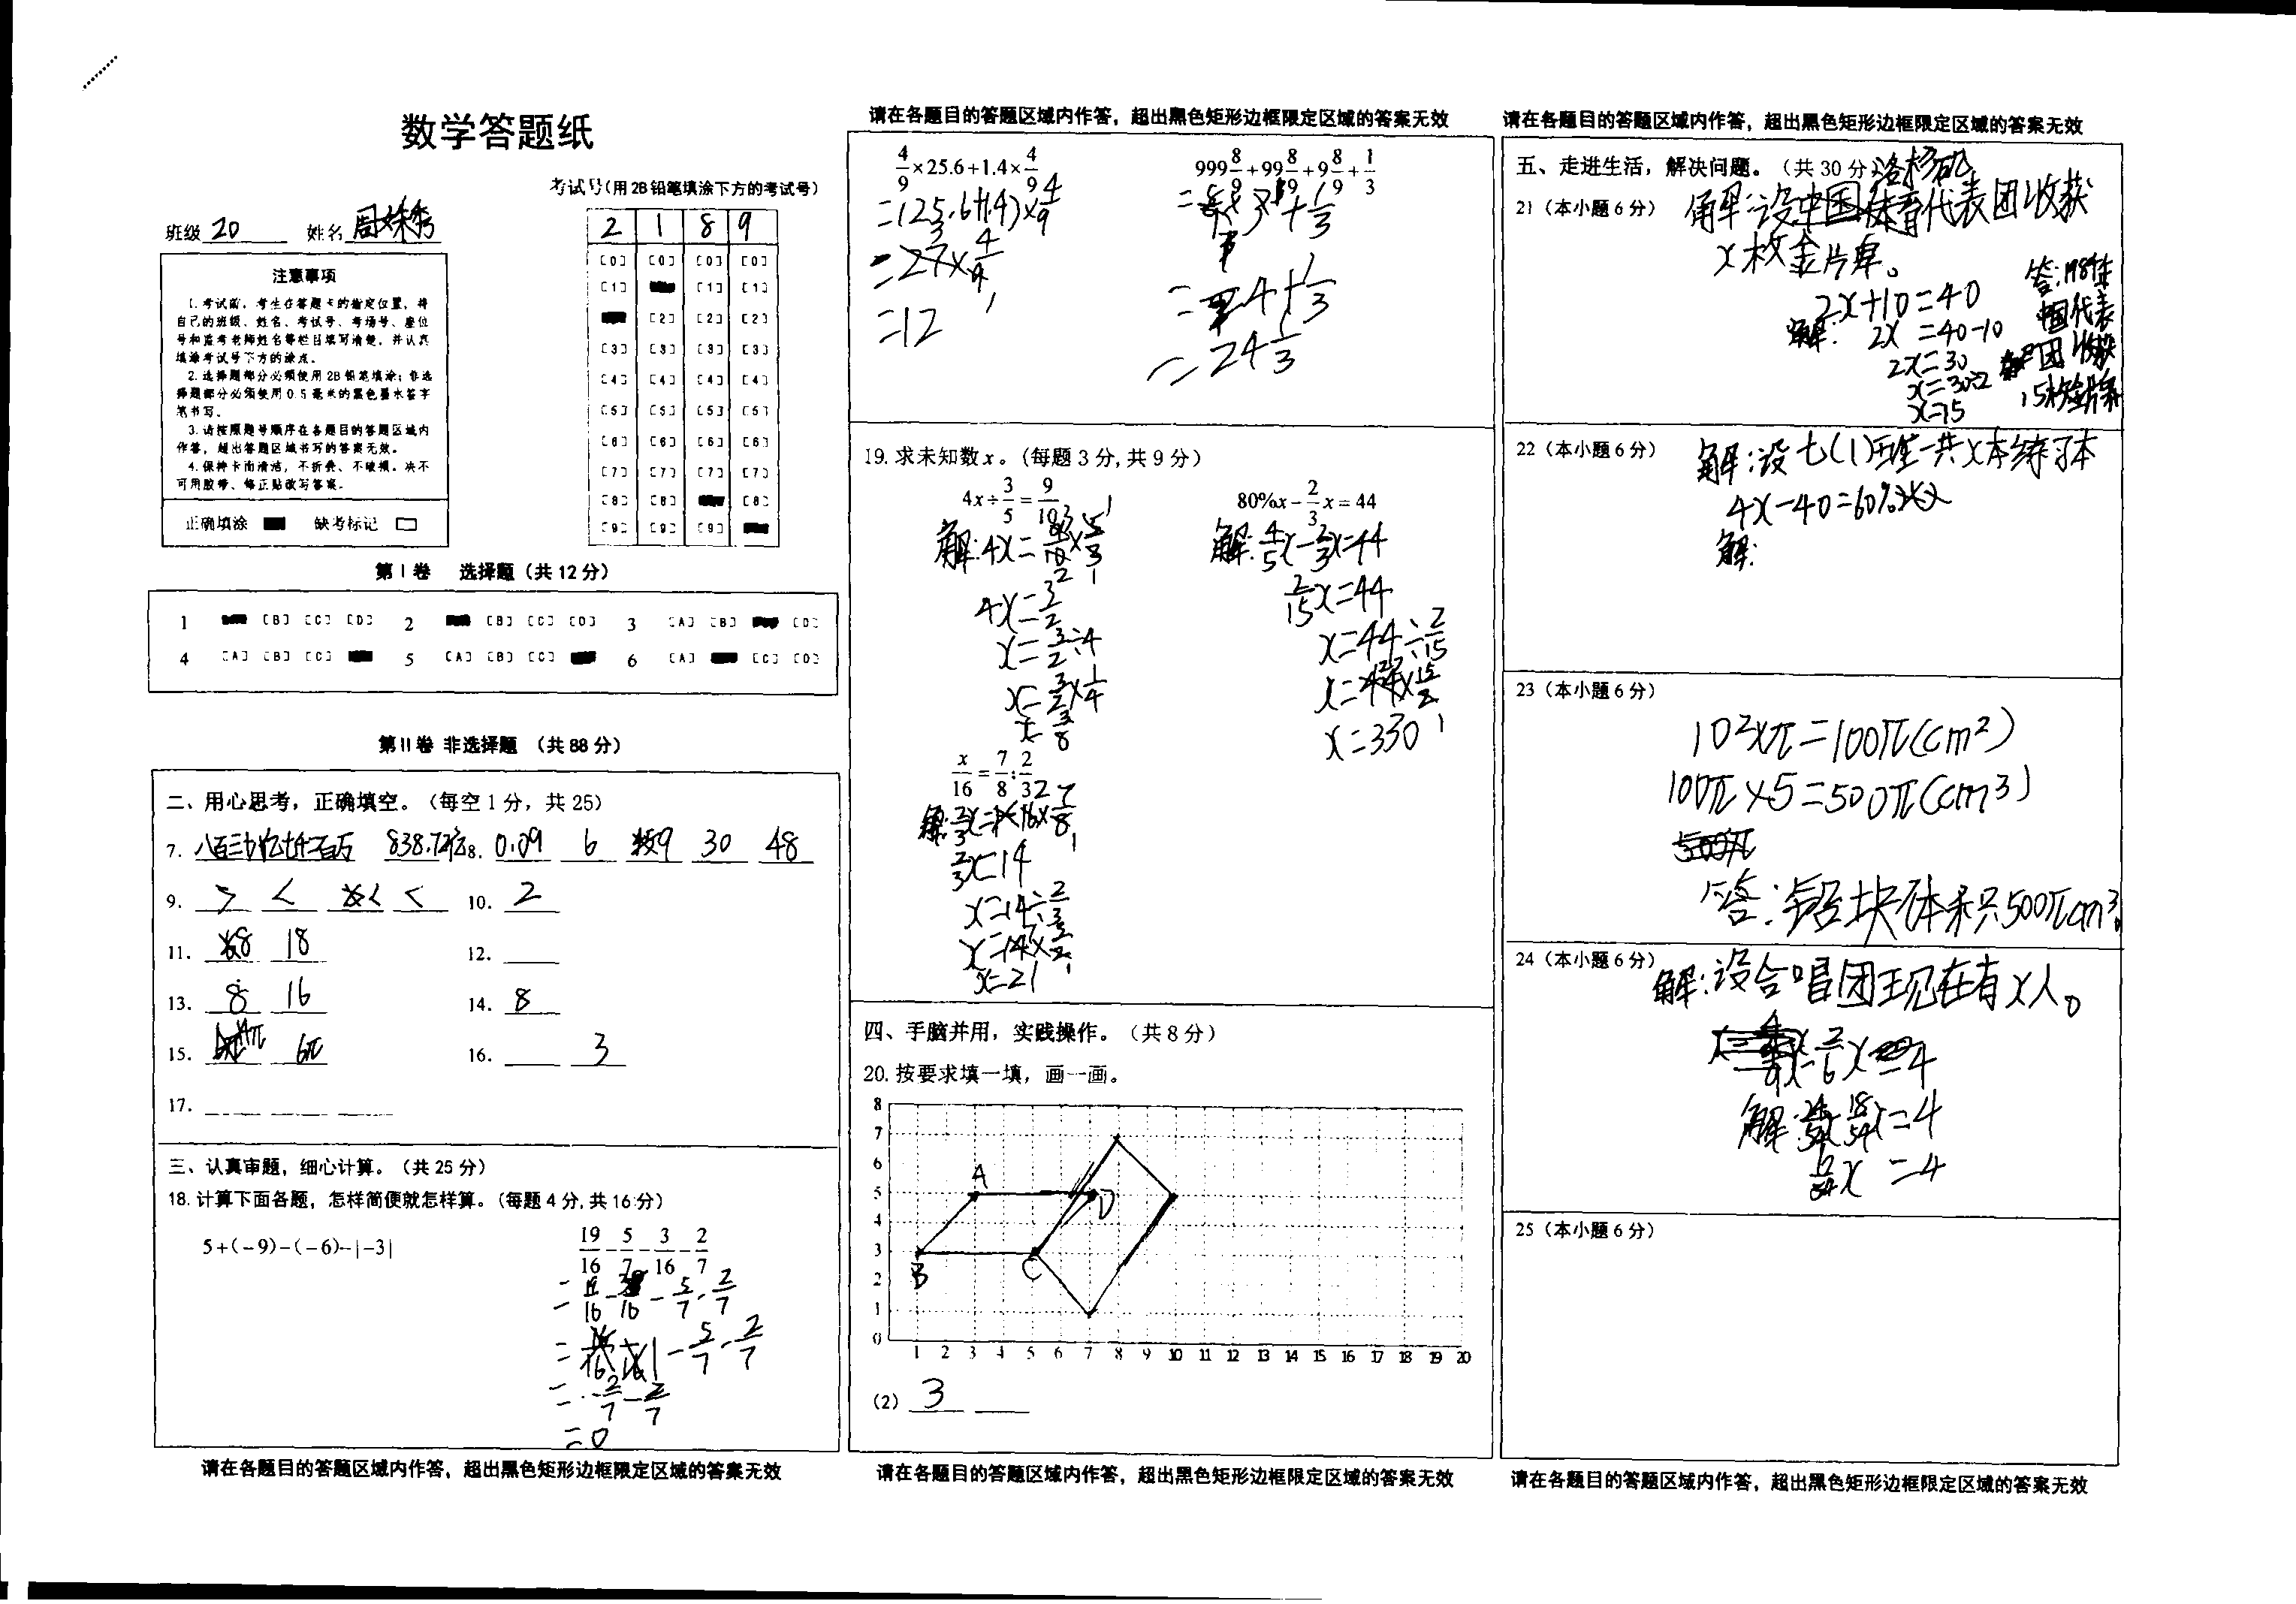 数学答题纸
考试号(用2B铅笔填涂下方的考试号)
班级 20 姓名
2 1 8 9
[0] [0] [0] [0]
[1] [1] [1]
[2] [2] [2]
[3] [3] [3] [3]
[4] [4] [4] [4]
[5] [5] [5] [5]
[6] [6] [6] [6]
[7] [7] [7] [7]
[8] [8] [8]
[9] [9] [9]
注意事项
1.考试前，考生在答题卡的指定位置，将
自己的班级、姓名、考试号、考场号、座位
号和监考老师姓名等栏目填写清楚，并认真
填涂考试号下方的涂点。
2.选择题部分必须使用2B铅笔填涂；非选
择题部分必须使用0.5毫米的黑色墨水签字
笔书写。
3.请按照题号顺序在各题目的答题区域内
作答，超出答题区域书写的答案无效。
4.保持卡面清洁，不折叠、不破损。决不
可用胶带、修正贴改写答案。
正确填涂 缺考标记
第I卷 选择题（共12分）
1 [B] [C] [D] 2 [B] [C] [D] 3 [A] [B] [D]
4 [A] [B] [C] 5 [A] [B] [C] 6 [A] [C] [D]
第II卷 非选择题 （共88分）
二、用心思考，正确填空。（每空1分，共25）
7. 838.72亿 8. 0.09 6 9 30 48
9. > < < < 10. 2
11. 8 18 12.
13. 8 16 14. 8
15. 6π 16. 3
17.
三、认真审题，细心计算。（共25分）
18.计算下面各题，怎样简便就怎样算。（每题4分,共16分）
5+(-9)-(-6)-|-3|
19/16-5/7-3/16-2/7
=19/16-3/16-5/7-2/7
=1-5/7-2/7
=2/7-2/7
=0
请在各题目的答题区域内作答，超出黑色矩形边框限定区域的答案无效
请在各题目的答题区域内作答，超出黑色矩形边框限定区域的答案无效
4/9×25.6+1.4×4/9
=(25.6+1.4)×4/9
=27×4/9
=12
999 8/9+99 8/9+9 8/9+1/3
=24+1/3
=24 1/3
19.求未知数x。（每题3分,共9分）
4x÷3/5=9/10
解:4x=9/10×5/3
4x=3/2
x=3/2÷4
x=3/2×1/4
x=3/8
80%x-2/3x=44
解:4/5x-2/3x=44
2/15x=44
x=44÷2/15
x=44×15/2
x=330
x/16=7/8:2/3
解:2/3x=16×7/8
2/3x=14
x=14÷2/3
x=14×3/2
x=21
四、手脑并用，实践操作。（共8分）
20.按要求填一填，画一画。
8
7
6
5
4
3
2
1
0
A
D
B
C
1 2 3 4 5 6 7 8 9 10 11 12 13 14 15 16 17 18 19 20
(2) 3
请在各题目的答题区域内作答，超出黑色矩形边框限定区域的答案无效
请在各题目的答题区域内作答，超出黑色矩形边框限定区域的答案无效
五、走进生活，解决问题。（共30分）洛杉矶
21（本小题6分） 解:设代表团收获
x枚金牌。
2x+10=40
解: 2x=40-10
2x=30
x=30÷2
x=15
中国代表
团收获
22（本小题6分） 解:设七(1)班一共x本练习本
4x-40=60%x
解:
23（本小题6分）
10²×π=100π(cm²)
100π×5=500π(cm³)
答:铅块体积500πcm³
24（本小题6分） 解:设合唱团现在有x人。
4/9x-2/6x=4
解:24/54x-18/54x=4
x=4
25（本小题6分）
请在各题目的答题区域内作答，超出黑色矩形边框限定区域的答案无效